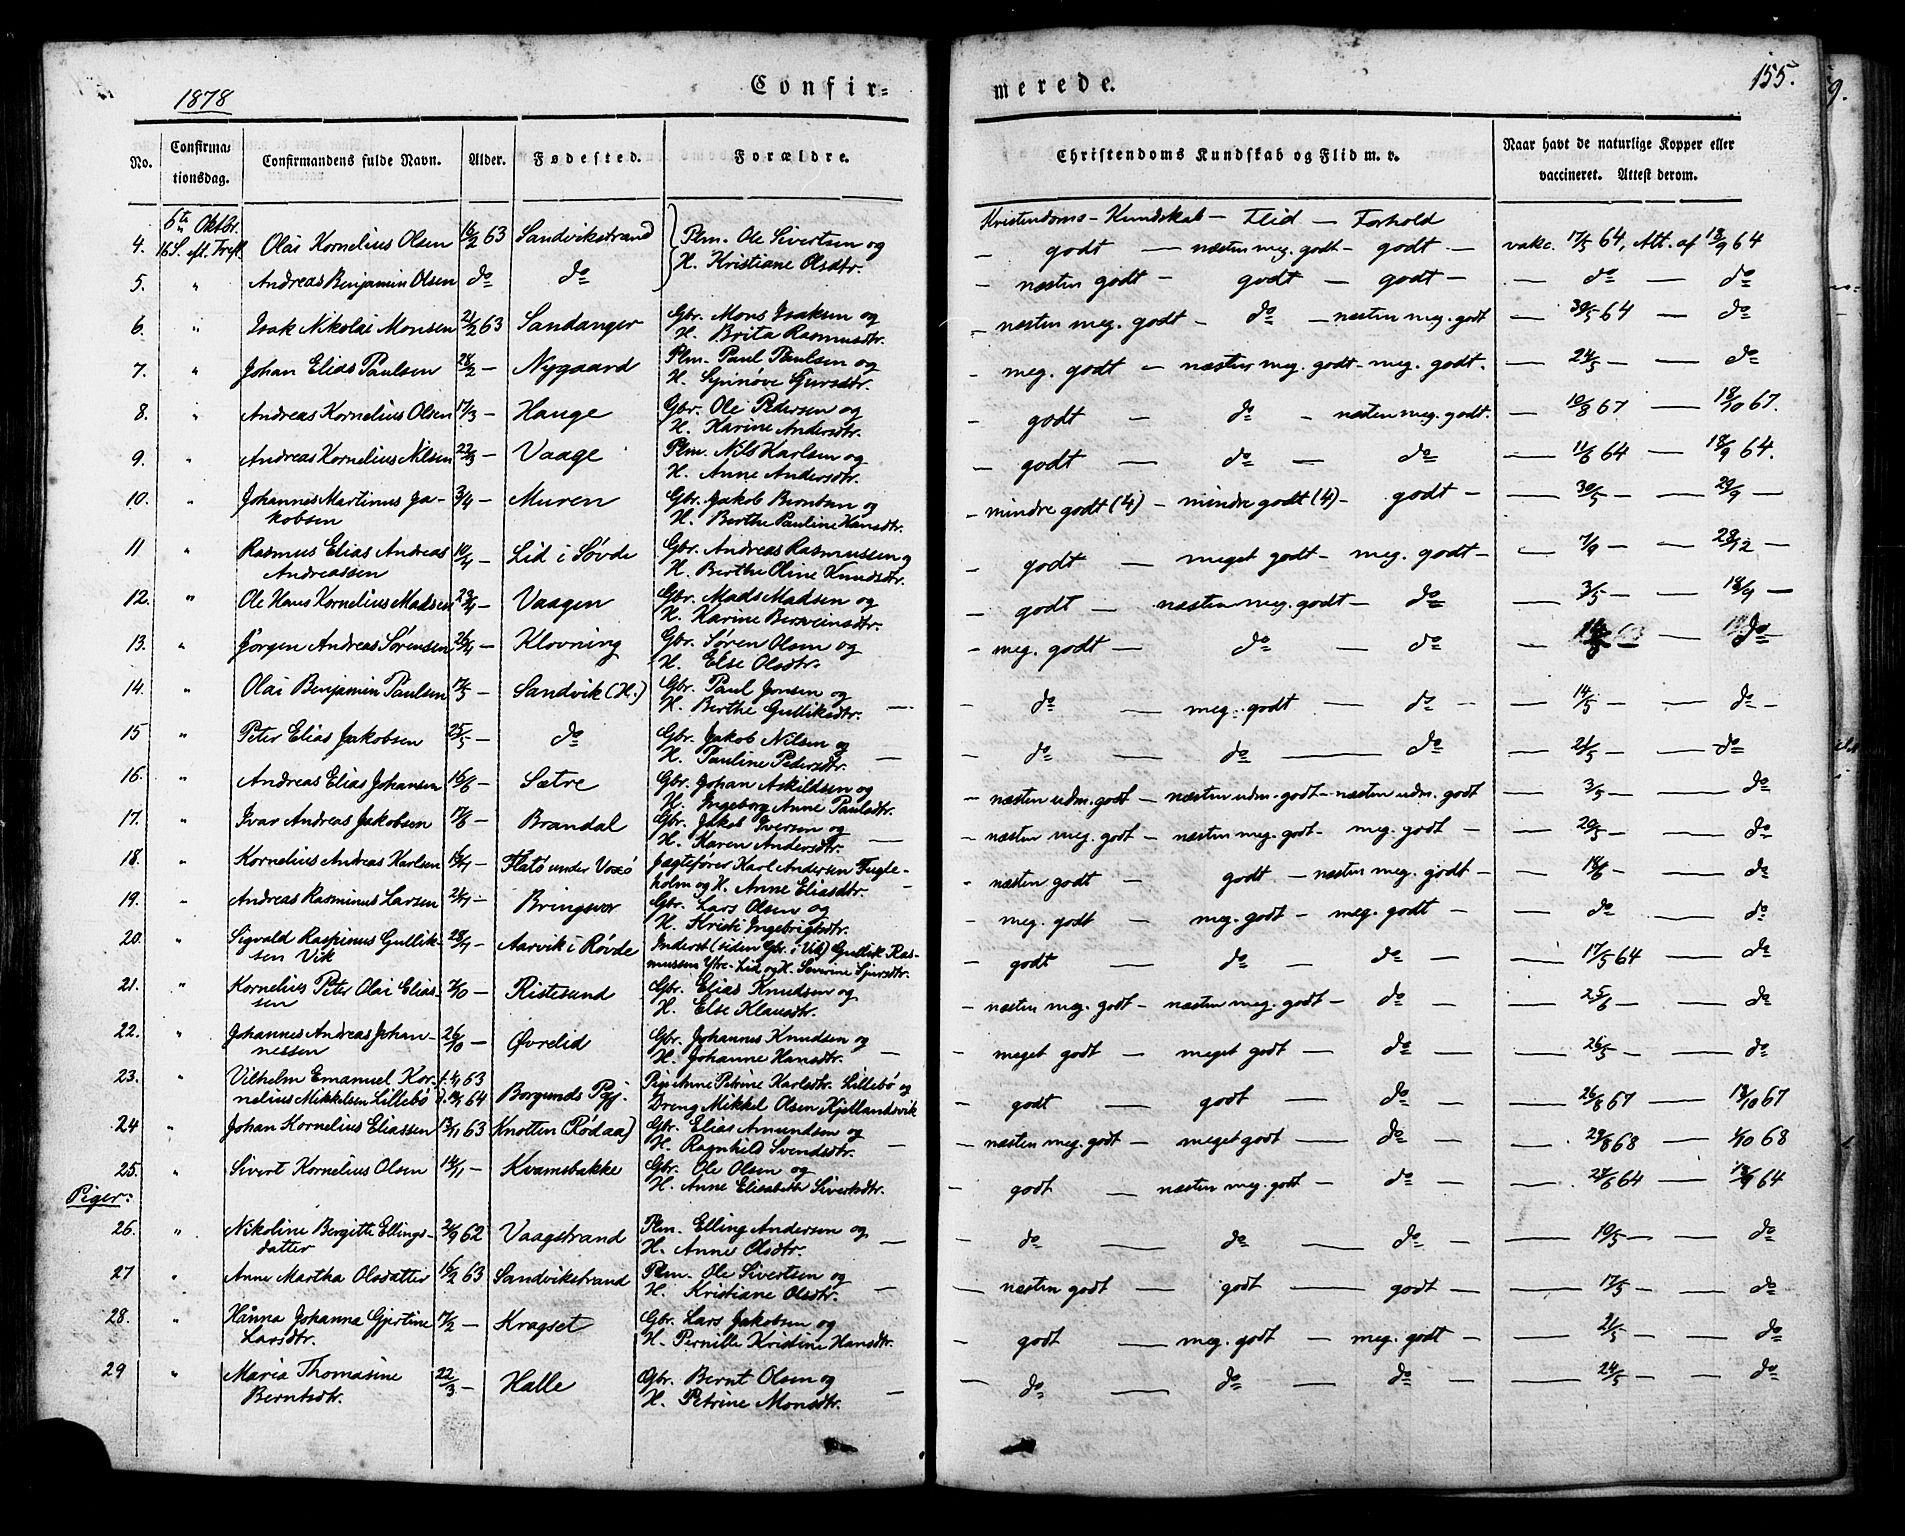 1878
Confir-
merede.
155.
9.
No.
Confirma-
tionsdag.
Confirmandens fulde Navn.
Alder.
Fødested.
Forældre.
Christendoms Kundskab og Flid m. v.
Naar havt de naturlige Kopper eller
vaccineret. Attest derom.
6te Oktbr.
Kristendoms- Kundskab - Flid - Forhold
4. 16 S. eft. Tref. Olai Kornelius Olsen 16/2 63 Sandvikstrand Plm. Ole Sivertsen og
H. Kristiane Olsdtr.
- godt - næsten meg. godt - godt - vakc. 17/5 64, Att. af 18/9 64
5. " Andreas Benjamin Olsen do do
- næsten godt - godt - godt - do - do
6. " Isak Nikolai Monsen 21/2 63 Sandanger Gbr. Mons Isaksen og
H. Brita Rasmusdtr.
- næsten meg. godt - do - næsten meg. godt - 30/5 64 - do
7. " Johan Elias Paulsen 28/2 - Nygaard Plm. Paul Paulsen og
H. Synnøve Sjursdtr.
- meg. godt - næsten meg. godt - meg. godt. - 24/5 - do
8. " Andreas Kornelius Olsen 17/3 - Hauge Gbr. Ole Pedersen og
H. Karine Andersdtr.
- godt - do - næsten meg. godt. - 10/8 67 - 18/10 67.
9. " Andreas Kornelius Nilsen 22/3 - Vaage Plm. Nils Karlsen og
H. Anne Andersdtr.
- godt - do - do - 11/6 64 - 18/9 64.
10. " Johannes Martinus Ja-
kobsen 3/4 - Muren Gbr. Jakob Berntsen og
H. Berthe Pauline Hansdtr.
- mindre godt (4) - mindre godt (4) - godt - 30/5 - 29/9 -
11 " Rasmus Elias Andreas
Andreassen 10/4 - Lid i Søvde Gbr. Andreas Rasmussen og
H. Berthe Oline Knudsdtr.
- godt - meget godt - meg. godt - 7/9 - 28/12 -
12. " Ole Hans Kornelius Madsen 23/4 - Vaagen Gbr. Mads Madsen og
H. Karine Bersveinsdtr.
- godt - næsten meg. godt - do - 3/5 - 18/9 -
13. " Jørgen Andreas Sørensen 26/4 - Klovning Gbr. Søren Olsen og
H. Else Olsdtr.
- meg. godt - do - do - 63 - do
14. " Olai Benjamin Paulsen 17/5 - Sandvik (H.) Gbr. Paul Jonsen og
H. Berthe Gulliksdtr.
- do - meg. godt - do - 14/5 - do -
15 " Peter Elias Jakobsen 25/5 - do Gbr. Jakob Nilsen og
H. Pauline Pedersdtr.
- do - do - do - 21/5 - do
16. " Andreas Elias Johansen 16/6 - Sætre Gbr. Johan Askildsen og
H. Ingeborg Anne Paulsdtr.
- næsten udm. godt - næsten udm. godt - næsten udm. godt - 3/5 - do
17. " Ivar Andreas Jakobsen 17/6 - Brandal Gbr. Jakob Iversen og
H. Karen Andersdtr.
- næsten meg. godt - næsten meg. godt - meg. godt - 20/5 - do
18. " Kornelius Andreas Karlsen 16/7 - Flatø under Voxø Jægtefører Karl Andersen Fugle-
holm og H. Anne Eliasdtr.
- næsten godt - godt - næsten meg. godt - 18/6 - do
19. " Andreas Rasminus Larsen 21/7 - Bringsvor Gbr. Lars Olsen og
H. Kristi Ingebrigtsdtr.
- meg. godt - meg. godt - meg. godt - do - do
20. " Sigvald Rasmus Gullik-
sen Vik 28/7 - Aarvik i Røvde Inderst (siden Gbr. i Vik) Gullik Ras-
mussen Ytre-Lid og H. Severine Sjursdtr.
- godt - do - do - 17/5 64 - do
21. " Kornelius Peter Olai Elias-
sen 2/10 - Ristesund Gbr. Elias Knudsen og
H. Else Klausdtr.
- næsten meg. godt - næsten meg. godt - do - 25/6 - do
22. " Johannes Andreas Johan-
nessen 26/10 - Øvrelid Gbr. Johannes Knudsen og
H. Johanne Hansdtr.
- meget godt - meget godt - do - 26/5 - do
23. " Vilhelm Emanuel Kor-
nelius Mikkelsen Lillebø 63 64 Borgunds Pgj. Pige Anne Petrine Karlsdtr. Lillebø og
Dreng Mikkel Olsen Kjellandsvik
- godt - godt - do - 26/8 67 - 13/10 67
24 " Johan Kornelius Eliassen 13/11 63 Knotten (Rødaa) Gbr. Elias Amundsen og
H. Ragnhild Svendsdtr.
- næsten meg. godt - meget godt - do - 29/8 68 - 1/10 68
25. " Sivert Kornelius Olsen 14/11 - Kvamsbakke Gbr. Ole Olsen og
H. Anne Elisabeth Sivertsdtr.
- godt - næsten meg. godt - do - 27/6 64 - 18/9 64
Piger:
26. " Nikoline Bergitte Ellings-
datter 21/9 62 Vaagstrand Plm. Elling Andersen og
H. Anne Olsdtr.
- do - do - do - 10/5 - do
27 " Anne Martha Olsdatter 16/2 63 Sandvikstrand Plm. Ole Sivertsen og
H. Kristiane Olsdtr.
- næsten godt - godt - godt - 17/5 - do
28. " Hanna Johanna Gjertine
Larsdtr. 17/2 - Kragset Gbr. Lars Jakobsen og
H. Pernille Kristine Hansdtr.
- godt - meg. godt - meg. godt - 21/5 - do
29 " Maria Thomasine
Berntsdtr. 22/3 - Halle Gbr. Bernt Olsen og
H. Petrine Monsdtr.
- do - do - do - 24/5 - do